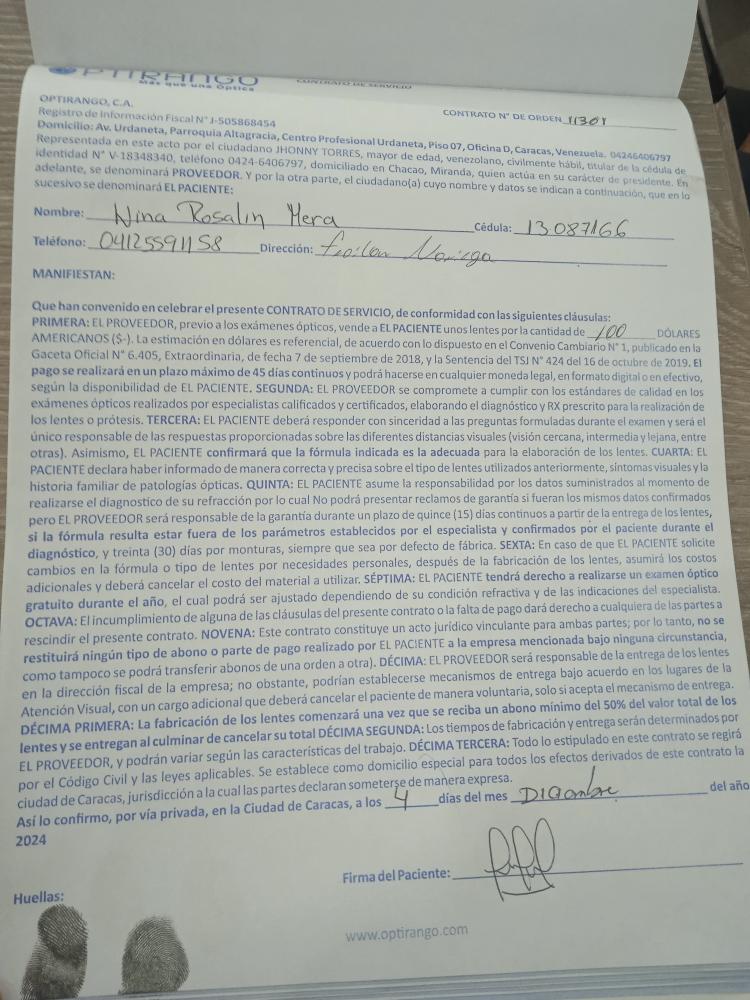 OPTIRANGO
Más que una Óptica
CONTRATO DE SERVICIO
OPTIRANGO, C.A.
CONTRATO N° DE ORDEN 11301
Registro de Información Fiscal N° J-505868454
Domicilio: Av. Urdaneta, Parroquia Altagracia, Centro Profesional Urdaneta, Piso 07, Oficina D, Caracas, Venezuela. 04246406797
Representada en este acto por el ciudadano JHONNY TORRES, mayor de edad, venezolano, civilmente hábil, titular de la cédula de
identidad N° V-18348340, teléfono 0424-6406797, domiciliado en Chacao, Miranda, quien actúa en su carácter de presidente. En
adelante, se denominará PROVEEDOR. Y por la otra parte, el ciudadano(a) cuyo nombre y datos se indican a continuación, que en lo
sucesivo se denominará EL PACIENTE:
Nombre: Nina Rosalin Mera Cédula: 13087166
Teléfono: 04125591158 Dirección:
MANIFIESTAN:
Que han convenido en celebrar el presente CONTRATO DE SERVICIO, de conformidad con las siguientes cláusulas:
PRIMERA: EL PROVEEDOR, previo a los exámenes ópticos, vende a EL PACIENTE unos lentes por la cantidad de 100 DÓLARES
AMERICANOS ($-). La estimación en dólares es referencial, de acuerdo con lo dispuesto en el Convenio Cambiario N° 1, publicado en la
Gaceta Oficial N° 6.405, Extraordinaria, de fecha 7 de septiembre de 2018, y la Sentencia del TSJ N° 424 del 16 de octubre de 2019. El
pago se realizará en un plazo máximo de 45 días continuos y podrá hacerse en cualquier moneda legal, en formato digital o en efectivo,
según la disponibilidad de EL PACIENTE. SEGUNDA: EL PROVEEDOR se compromete a cumplir con los estándares de calidad en los
exámenes ópticos realizados por especialistas calificados y certificados, elaborando el diagnóstico y RX prescrito para la realización de
los lentes o prótesis. TERCERA: EL PACIENTE deberá responder con sinceridad a las preguntas formuladas durante el examen y será el
único responsable de las respuestas proporcionadas sobre las diferentes distancias visuales (visión cercana, intermedia y lejana, entre
otras). Asimismo, EL PACIENTE confirmará que la fórmula indicada es la adecuada para la elaboración de los lentes. CUARTA: EL
PACIENTE declara haber informado de manera correcta y precisa sobre el tipo de lentes utilizados anteriormente, síntomas visuales y la
historia familiar de patologías ópticas. QUINTA: EL PACIENTE asume la responsabilidad por los datos suministrados al momento de
realizarse el diagnostico de su refracción por lo cual No podrá presentar reclamos de garantía si fueran los mismos datos confirmados
pero EL PROVEEDOR será responsable de la garantía durante un plazo de quince (15) días continuos a partir de la entrega de los lentes,
si la fórmula resulta estar fuera de los parámetros establecidos por el especialista y confirmados por el paciente durante el
diagnóstico, y treinta (30) días por monturas, siempre que sea por defecto de fábrica. SEXTA: En caso de que EL PACIENTE solicite
cambios en la fórmula o tipo de lentes por necesidades personales, después de la fabricación de los lentes, asumirá los costos
adicionales y deberá cancelar el costo del material a utilizar. SÉPTIMA: EL PACIENTE tendrá derecho a realizarse un examen óptico
gratuito durante el año, el cual podrá ser ajustado dependiendo de su condición refractiva y de las indicaciones del especialista.
OCTAVA: El incumplimiento de alguna de las cláusulas del presente contrato o la falta de pago dará derecho a cualquiera de las partes a
rescindir el presente contrato. NOVENA: Este contrato constituye un acto jurídico vinculante para ambas partes; por lo tanto, no se
restituirá ningún tipo de abono o parte de pago realizado por EL PACIENTE a la empresa mencionada bajo ninguna circunstancia,
como tampoco se podrá transferir abonos de una orden a otra). DÉCIMA: EL PROVEEDOR será responsable de la entrega de los lentes
en la dirección fiscal de la empresa; no obstante, podrían establecerse mecanismos de entrega bajo acuerdo en los lugares de la
Atención Visual, con un cargo adicional que deberá cancelar el paciente de manera voluntaria, solo si acepta el mecanismo de entrega.
DÉCIMA PRIMERA: La fabricación de los lentes comenzará una vez que se reciba un abono mínimo del 50% del valor total de los
lentes y se entregan al culminar de cancelar su total DÉCIMA SEGUNDA: Los tiempos de fabricación y entrega serán determinados por
EL PROVEEDOR, y podrán variar según las características del trabajo. DÉCIMA TERCERA: Todo lo estipulado en este contrato se regirá
por el Código Civil y las leyes aplicables. Se establece como domicilio especial para todos los efectos derivados de este contrato la
ciudad de Caracas, jurisdicción a la cual las partes declaran someterse de manera expresa.
Así lo confirmo, por vía privada, en la Ciudad de Caracas, a los 4 días del mes Diciembre del año
2024
Firma del Paciente:
Huellas:
www.optirango.com